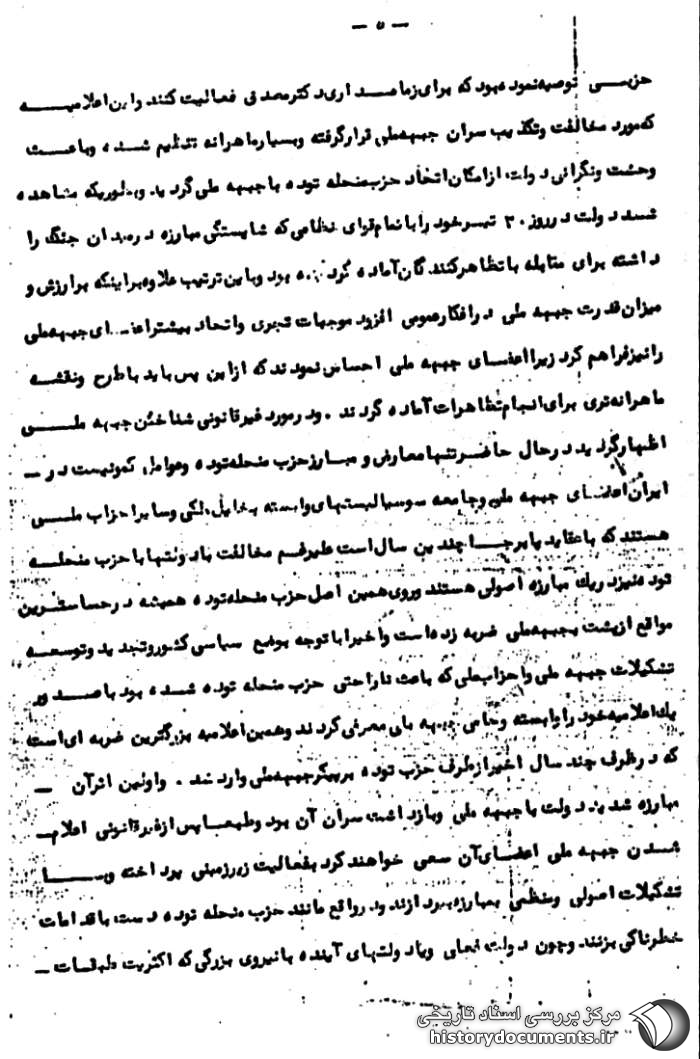 - ۵ -
حزبی توصیه نموده بود که برای زمامداری دکتر مصدق فعالیت کنند و این اعلامیه
که مورد مخالفت و تکذیب سران جبهه ملی قرار گرفته و بسیار ماهرانه تنظیم شده و باعث
وحشت و نگرانی دولت از امکان اتحاد حزب منحله توده با جبهه ملی گردید و بطوریکه مشاهده
شد دولت در روز ۳۰ تیر خود را با تمام قوای نظامی که شایستگی مبارزه در میدان جنگ را
داشته برای مقابله با تظاهرکنندگان آماده کرده بود و باین ترتیب علاوه بر اینکه بر ارزش و
میزان قدرت جبهه ملی در افکار عمومی افزود موجبات تجری و اتحاد بیشتر اعضای جبهه ملی
را نیز فراهم کرد زیرا اعضای جبهه ملی احساس نمودند که از این پس باید با طرح و نقشه
ماهرانه تری برای انجام تظاهرات آماده گردند . و در مورد غیر قانونی شناختن جبهه ملی
اظهار گردید در حال حاضر تنها معارض و مبارز حزب منحله توده و عوامل کمونیست در -
ایران اعضای جبهه ملی و جامعه سوسیالیستهای وابسته به خلیل ملکی و سایر احزاب ملی
هستند که با عقاید پابرجا چندین سال است علیرغم مخالفت باد ولتها با حزب منحله
توده نیز در یک مبارزه اصولی هستند و روی همین اصل حزب منحله توده همیشه در حساسترین
مواقع از پشت بجبهه ملی ضربه زده است و اخیرا با توجه بوضع سیاسی کشور و تجدید و توسعه
تشکیلات جبهه ملی و احزاب ملی که باعث ناراحتی حزب منحله توده شده بود با صدور
یک اعلامیه خود را وابسته و حامی جبهه ملی معرفی کردند و همین اعلامیه بزرگترین ضربه ای است
که در ظرف چند سال اخیر از طرف حزب توده بر پیکر جبهه ملی وارد شد . و اولین اثر آن -
مبارزه شدید دولت با جبهه ملی و بازداشت سران آن بود و طبعا پس از غیر قانونی اعلام
شدن جبهه ملی اعضای آن سعی خواهند کرد بفعالیت زیرزمینی پرداخته و با
تشکیلات اصولی و منظمی بمبارزه بپردازند و در واقع مانند حزب منحله توده دست باقدامات
خطرناکی بزنند و چون دولت فعلی و یا دولتهای آینده با نیروی بزرگی که اکثریت طبقات -
مرکز بررسی اسناد تاریخی
historydocuments.ir